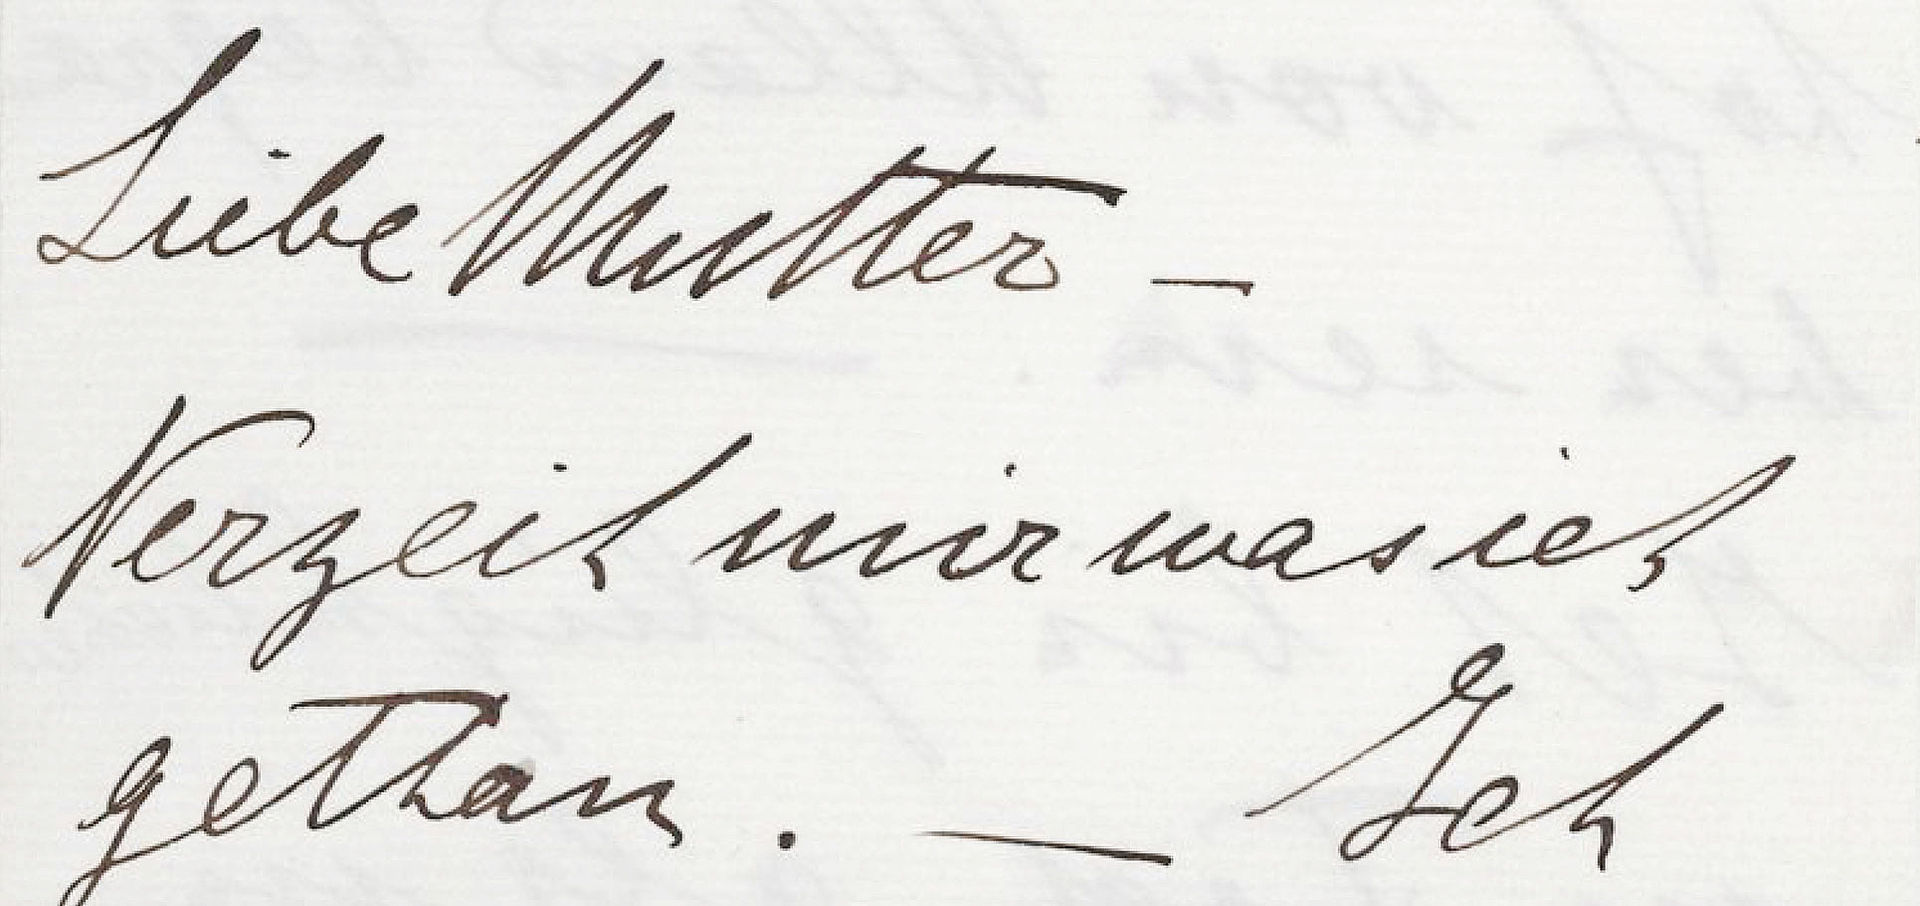 Liebe Mutter –
Verzeih mir was ich
gethan. — Ich